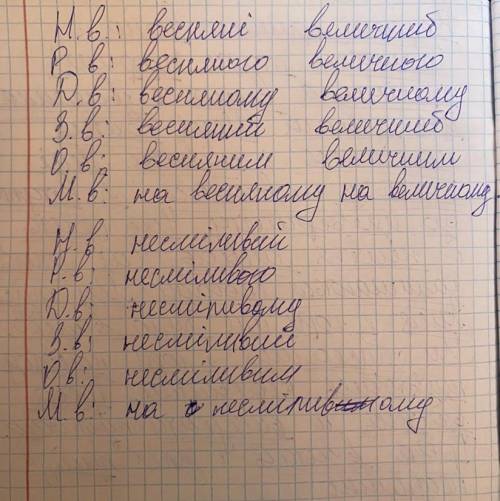 Н.в.: весняні величний
Р.в: весняного величного
Д.в: весняному величному
З.в: весняний величний
О.в: весняним величним
М.в: на весняному на величному.
Н.в: несміливий
Р.в: несміливого
Д.в: несміривому
З.в: несміливий
О.в: несміливим
М.в: на несміривому